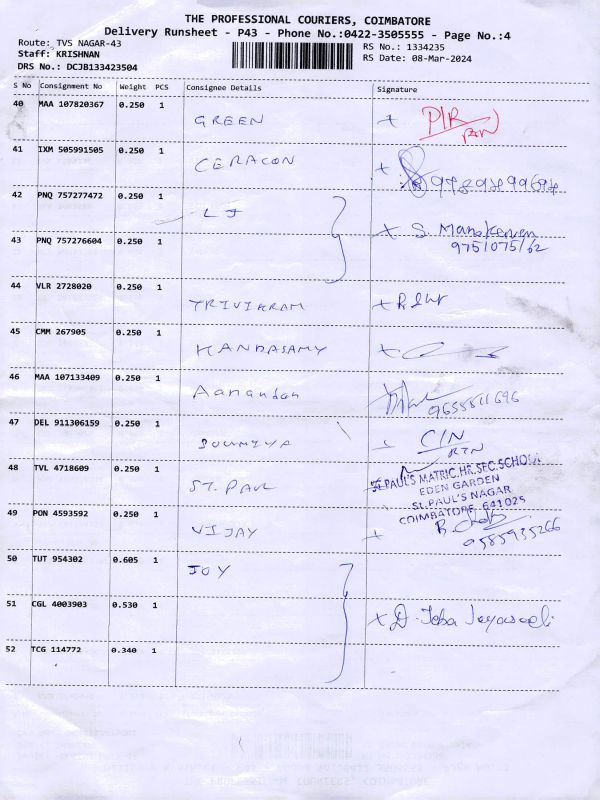 THE PROFESSIONAL COURIERS, COIMBATORE
Delivery Runsheet - P43 - Phone No.:0422-3505555 - Page No.:4
Route: TVS NAGAR-43 RS No.: 1334235
Staff: KRISHNAN RS Date: 08-Mar-2024
DRS No.: DCJB133423504
S No Consignment No Weight PCS Consignee Details Signature
40 MAA 107820367 0.250 1 GREEN
41 IXM 505991505 0.250 1 CERACON
42 PNQ 757277472 0.250 1 LJ
43 PNQ 757276604 0.250 1
44 VLR 2728020 0.250 1 TRIVIKRAM
45 CMM 267905 0.250 1 KANDASAMY
46 MAA 107133409 0.250 1 Aanandan
47 DEL 911306159 0.250 1 SOUMIYA
48 TVL 4718609 0.250 1 ST. PAUL
ST.PAUL'S MATRIC.HR.SEC.SCHOOL
EDEN GARDEN
St.PAUL'S NAGAR
COIMBATORE 641025
49 PON 4593592 0.250 1 VIJAY 9585935266
50 TUT 954302 0.605 1 JOY
51 CGL 4003903 0.530 1
52 TCG 114772 0.340 1